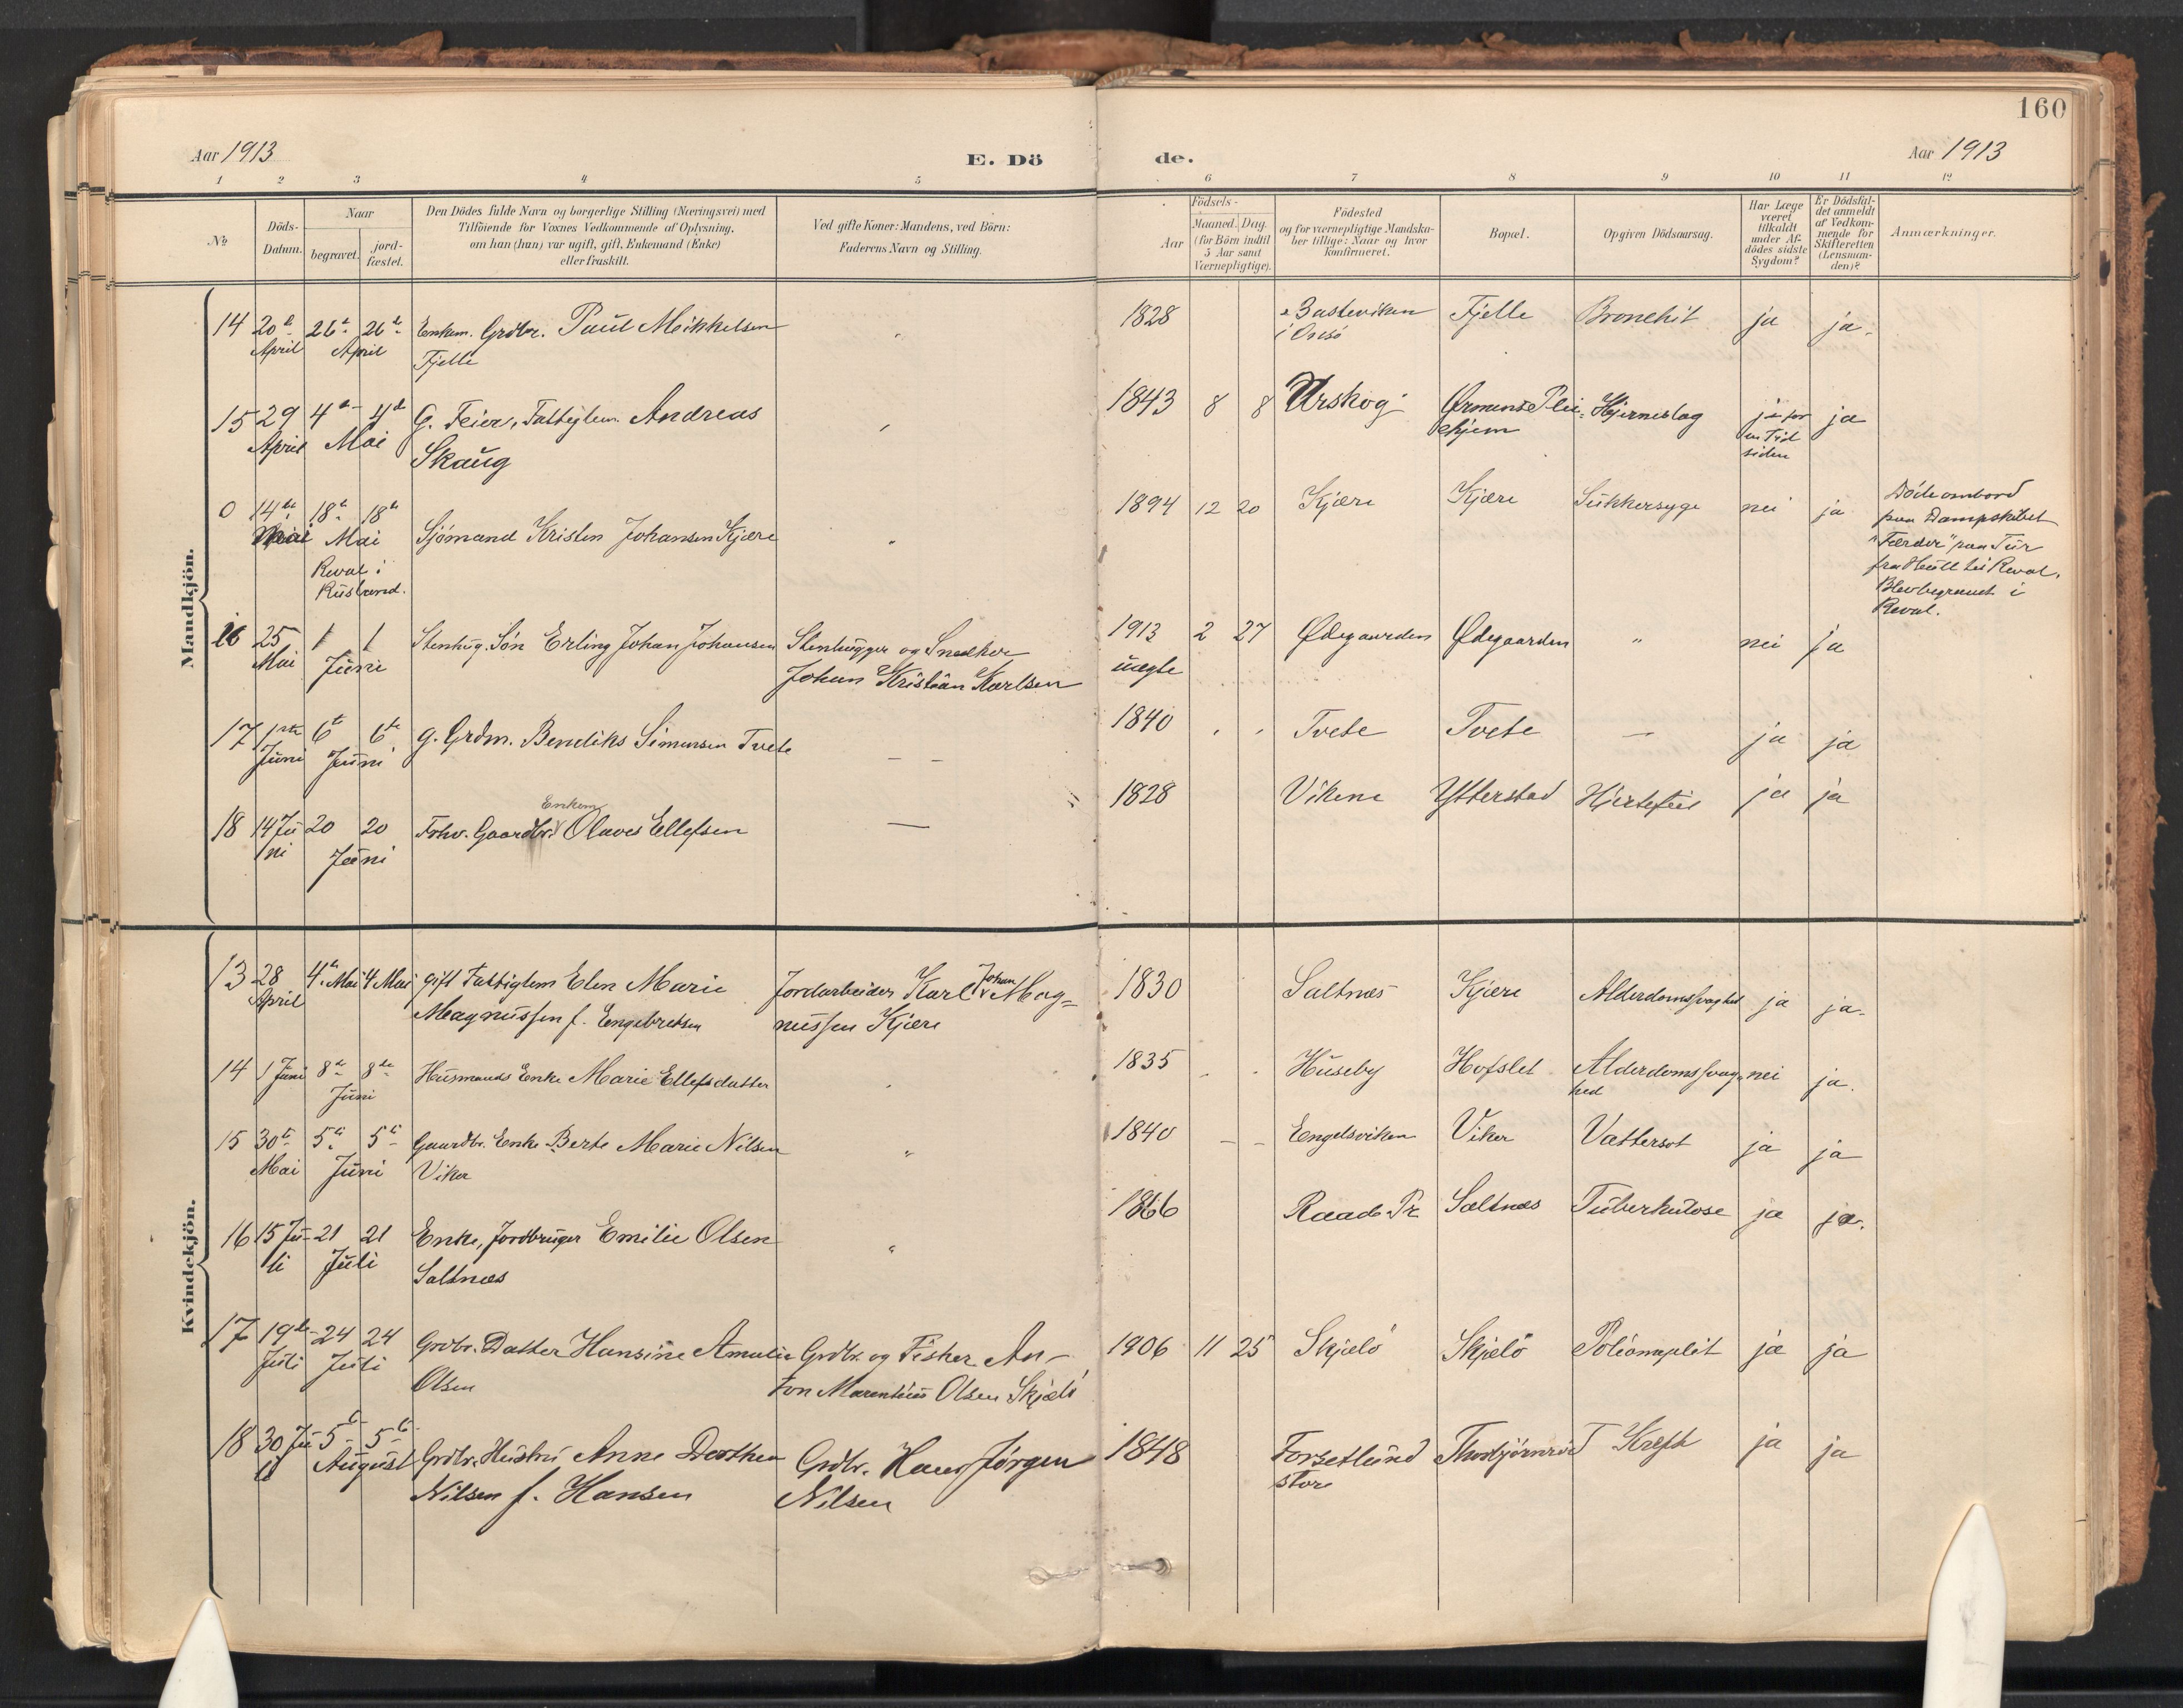 160
Aar 1913
E. Dö
de.
Aar 1913
1 2 3 4 5 6 7 8 9 10 11 12
No
Döds-
Datum.
Naar
begravet.
jord-
fæstet.
Den Dödes fulde Navn og borgerlige Stilling (Næringsvei) med
Tilföiende for Voxnes Vedkommende af Oplysning,
om han (hun) var ugift, gift, Enkemand (Enke)
eller fraskilt.
Ved gifte Koner: Mandens, ved Börn:
Faderens Navn og Stilling.
Aar
Födsels-
Maaned. Dag.
(for Börn indtil
5 Aar samt
Værnepligtige).
Födested
og for værnepligtige Mandska-
ber tillige: Naar og hvor
konfirmeret.
Bopæl.
Opgiven Dödsaarsag.
Har Læge
været
tilkaldt
under Af-
dödes sidste
Sygdom?
Er Dödsfal-
det anmeldt
af Vedkom-
mende for
Skifteretten
(Lensman-
den)?
Anmærkninger.
Mandkjön.
14 20de 26de 26de Enkem. Grdbr. Paul Mikkelsen " 1828 Basteviken Fjelle Bronchit ja ja.
April April Fjelle i Onsö
15 29 4de 4de G. Feier, Fattiglem. Andreas 1843 8 8 Urskog Ørmens Plei= Hjerneslag ja for ja
April Mai Skaug ehjem en Tid
siden
0 14de 18de 18de Sjömand Kristen Johansen Kjære " 1894 12 20 Kjære Kjære Sukkersyge nei ja Döde ombord
Mai Mai paa Dampskibet
Reval i "Færder" paa Tur
Rusland. fra Hull til Reval.
Blev begravet i
Reval.
16 25 1 1 Stenhug. Søn Erling Johan Johansen Stenhugger og Snedker 1913 2 27 Ødegaarden Ødegaarden " nei ja
Mai Juni Johan Kristian Karlsen uægte
17 1ste 6te 6te g. Grdm. Bendiks Simensen Tvete — — 1840 Tvete Tvete — ja ja
Juni Juni
Enkem
18 14 Ju 20 20 Forhv. Gaardbr. Olaves Ellefsen — 1828 Vikene Ytterstad Hjertefeil ja ja
ni Juni
Kvindekjön.
13 28 4de Mai 4 Mai gift Fattiglem Elen Marie Jordarbeider Karl Johan Mag- 1830 Saltnæs Kjære Alderdomssvaghed ja ja.
April Magnussen f. Engebretsen nussen Kjære
14 1 Juni 8de 8de Husmands Enke Marie Ellefsdatter 1835 Huseby Hofslet Alderdomssvag= nei ja.
Juni hed
15 30te 5te 5te Gaardbr. Enke Berte Marie Nilsen " 1840 — — Engelsviken Viker Vattersot ja ja
Mai Juni Viker
16 15 Ju- 21 21 Enke, Jordbruger Emilie Olsen " 1866 Raade Pr Saltnæs Tuberkulose ja ja.
li Juli Saltnæs
17 19de 24 24 Grdbr. Datter Hansine Amalie Grdbr. og Fisker An- 1906 11 25 Skjælö Skjælö ja ja
Juli Juli Olsen ton Marentius Olsen Skjælö
18 30 Ju 5te 5te Grdbr. Hustru Anne Dorthea Grdbr. Hans Jørgen 1848 Forsetlund Thorbjörnröd Kreft ja ja
li August Nilsen f. Hansen Nilsen store